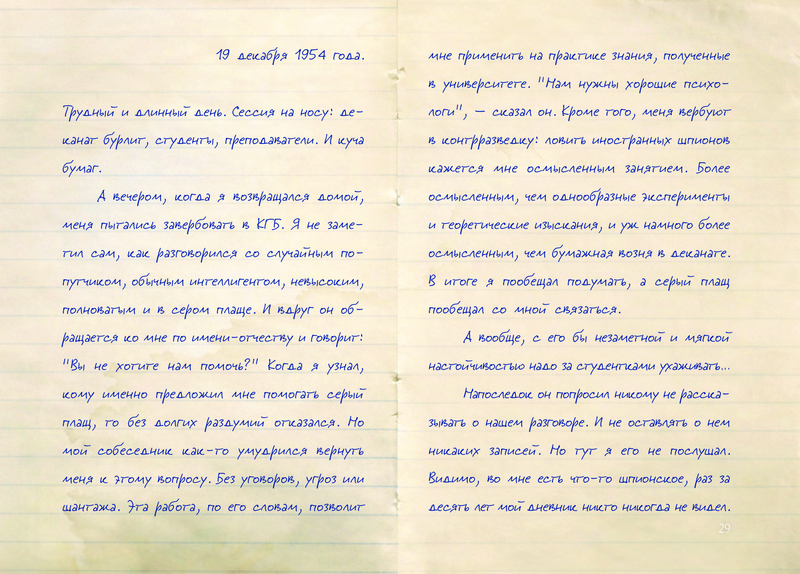 19 декабря 1954 года.
Трудный и длинный день. Сессия на носу: де-
канат бурлит, студенты, преподаватели. И куча
бумаг.
А вечером, когда я возвращался домой,
меня пытались завербовать в КГБ. Я не заме-
тил сам, как разговорился со случайным по-
путчиком, обычным интеллигентом, невысоким,
полноватым и в сером плаще. И вдруг он об-
ращается ко мне по имени-отчеству и говорит:
"Вы не хотите нам помочь?" Когда я узнал,
кому именно предложил мне помогать серый
плащ, то без долгих раздумий отказался. Но
мой собеседник как-то умудрился вернуть
меня к этому вопросу. Без уговоров, угроз или
шантажа. Эта работа, по его словам, позволит
мне применить на практике знания, полученные
в университете. "Нам нужны хорошие психо-
логи", – сказал он. Кроме того, меня вербуют
в контрразведку: ловить иностранных шпионов
кажется мне осмысленным занятием. Более
осмысленным, чем однообразные эксперименты
и теоретические изыскания, и уж намного более
осмысленным, чем бумажная возня в деканате.
В итоге я пообещал подумать, а серый плащ
пообещал со мной связаться.
А вообще, с его бы незаметной и мягкой
настойчивостью надо за студентками ухаживать...
Напоследок он попросил никому не расска-
зывать о нашем разговоре. И не оставлять о нем
никаких записей. Но тут я его не послушал.
Видимо, во мне есть что-то шпионское, раз за
десять лет мой дневник никто никогда не видел.
29